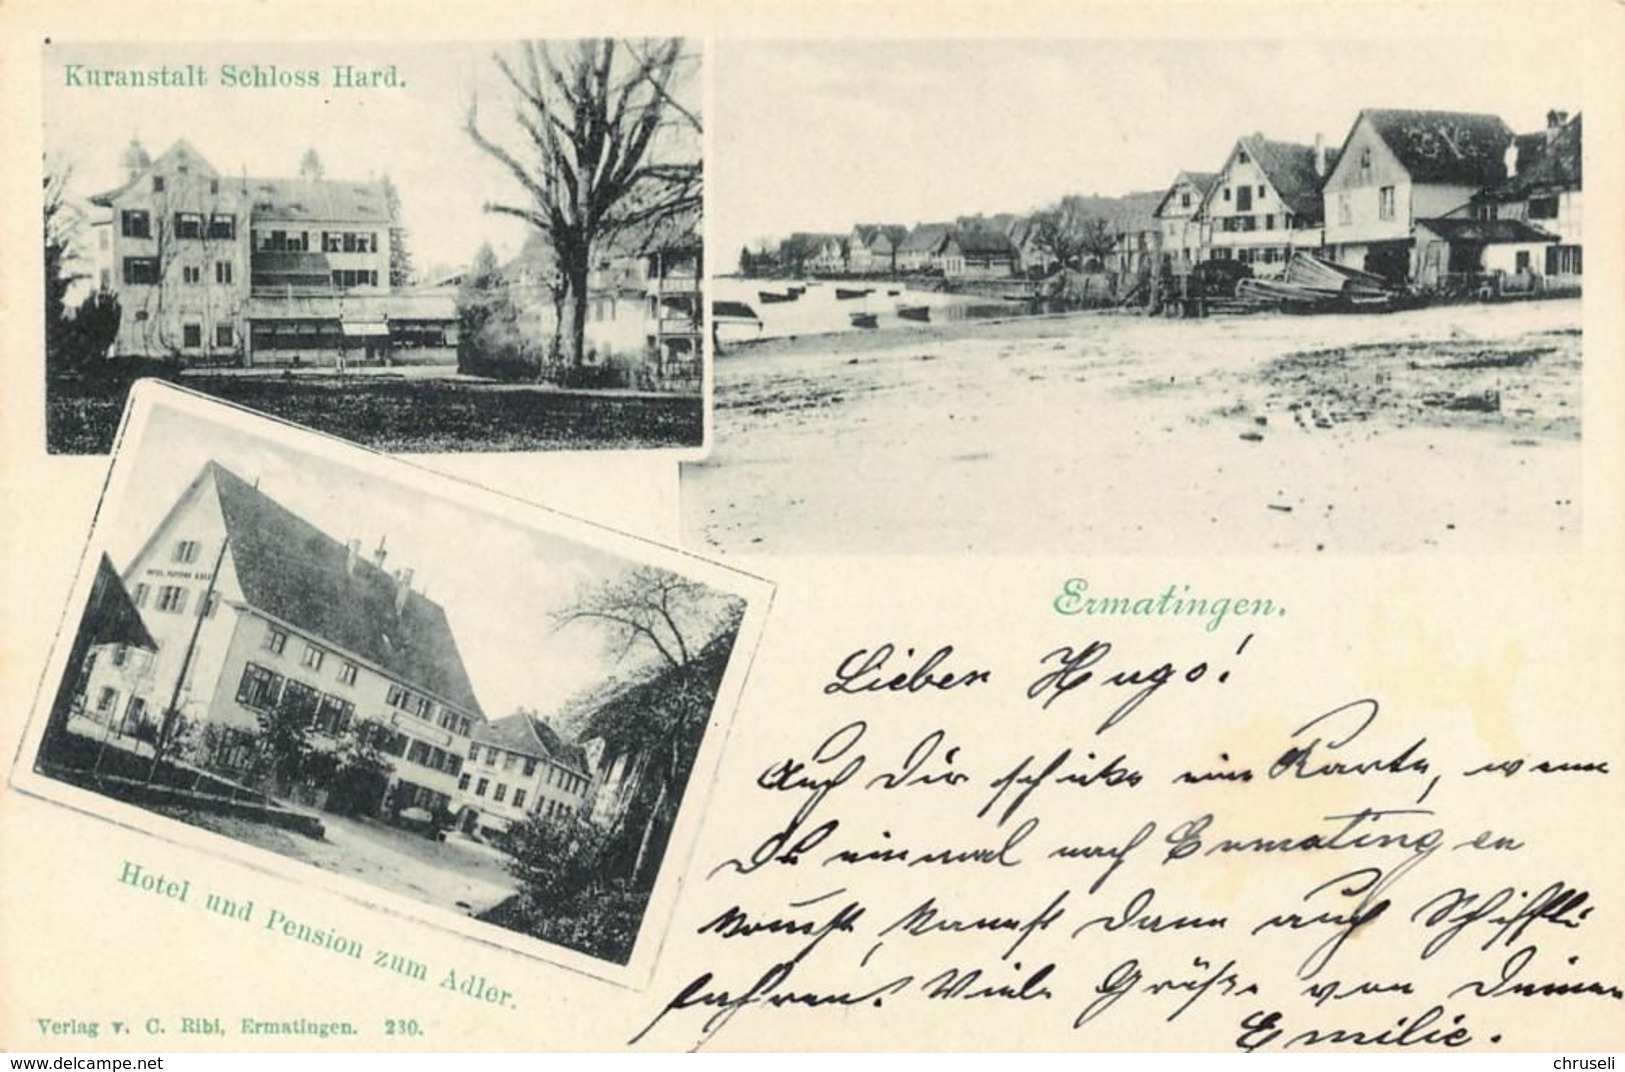 Kuranstalt Schloss Hard.
HOTEL PENSION ADLER
Ermatingen.
Lieber Hugo!
Auch Dir schicke eine Karte, wenn
Du einmal nach Ermatingen
kommst, kannst dann auch Schiffli
fahren. Viele Grüße von Deiner
Emilie.
Hotel und Pension zum Adler.
Verlag v. C. Ribi, Ermatingen. 230.
www.delcampe.net
chruseli